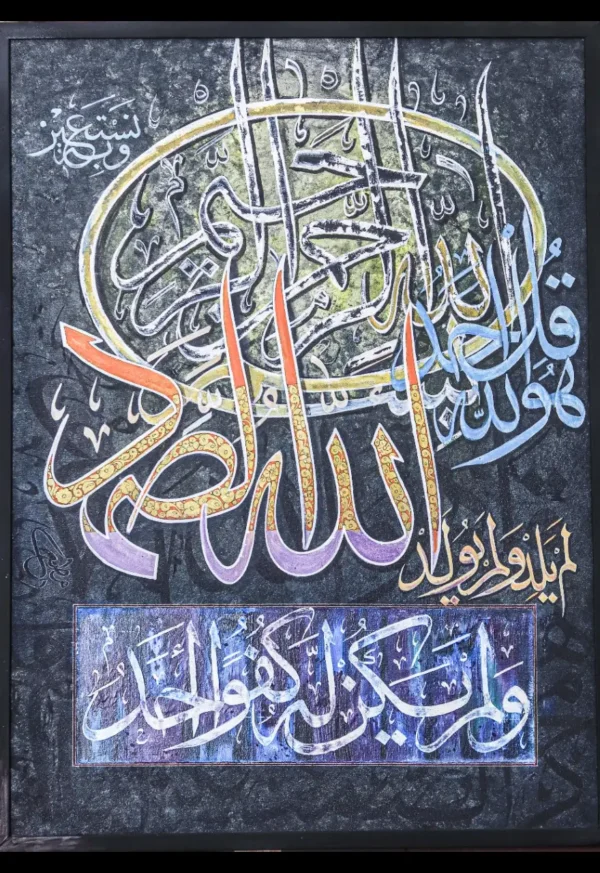 وبه نستعين
بسم الله الرحمن الرحيم
قل هو الله احد
الله الصمد
لم يلد ولم يولد
ولم يكن له كفوا احد